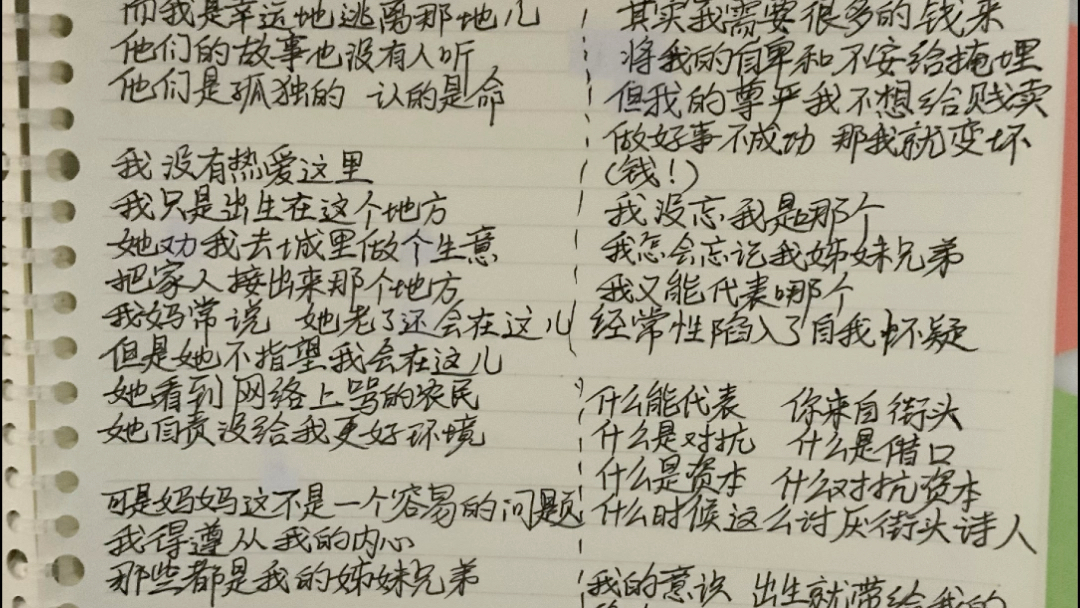 而我是幸运地逃离那地儿
他们的故事也没有人听
他们是孤独的 认的是命
我没有热爱这里
我只是出生在这个地方
她劝我去城里做个生意
把家人接出来那个地方
我妈常说 她老了还会在这儿
但是她不指望我会在这儿
她看到网络上骂的农民
她自责没给我更好环境
可是妈妈这不是一个容易的问题
我得遵从我的内心
那些都是我的姊妹兄弟
其实我需要很多的钱来
将我的自卑和不安给掩埋
但我的尊严我不想给贱卖
做好事不成功 那我就变坏
(钱!)
我没忘我是哪个
我怎会忘记我姊妹兄弟
我又能代表哪个
经常性陷入了自我怀疑
什么能代表 你来自街头
什么是对抗 什么是借口
什么是资本 什么对抗资本
什么时候这么讨厌街头诗人
我的意识 出生就带给我的